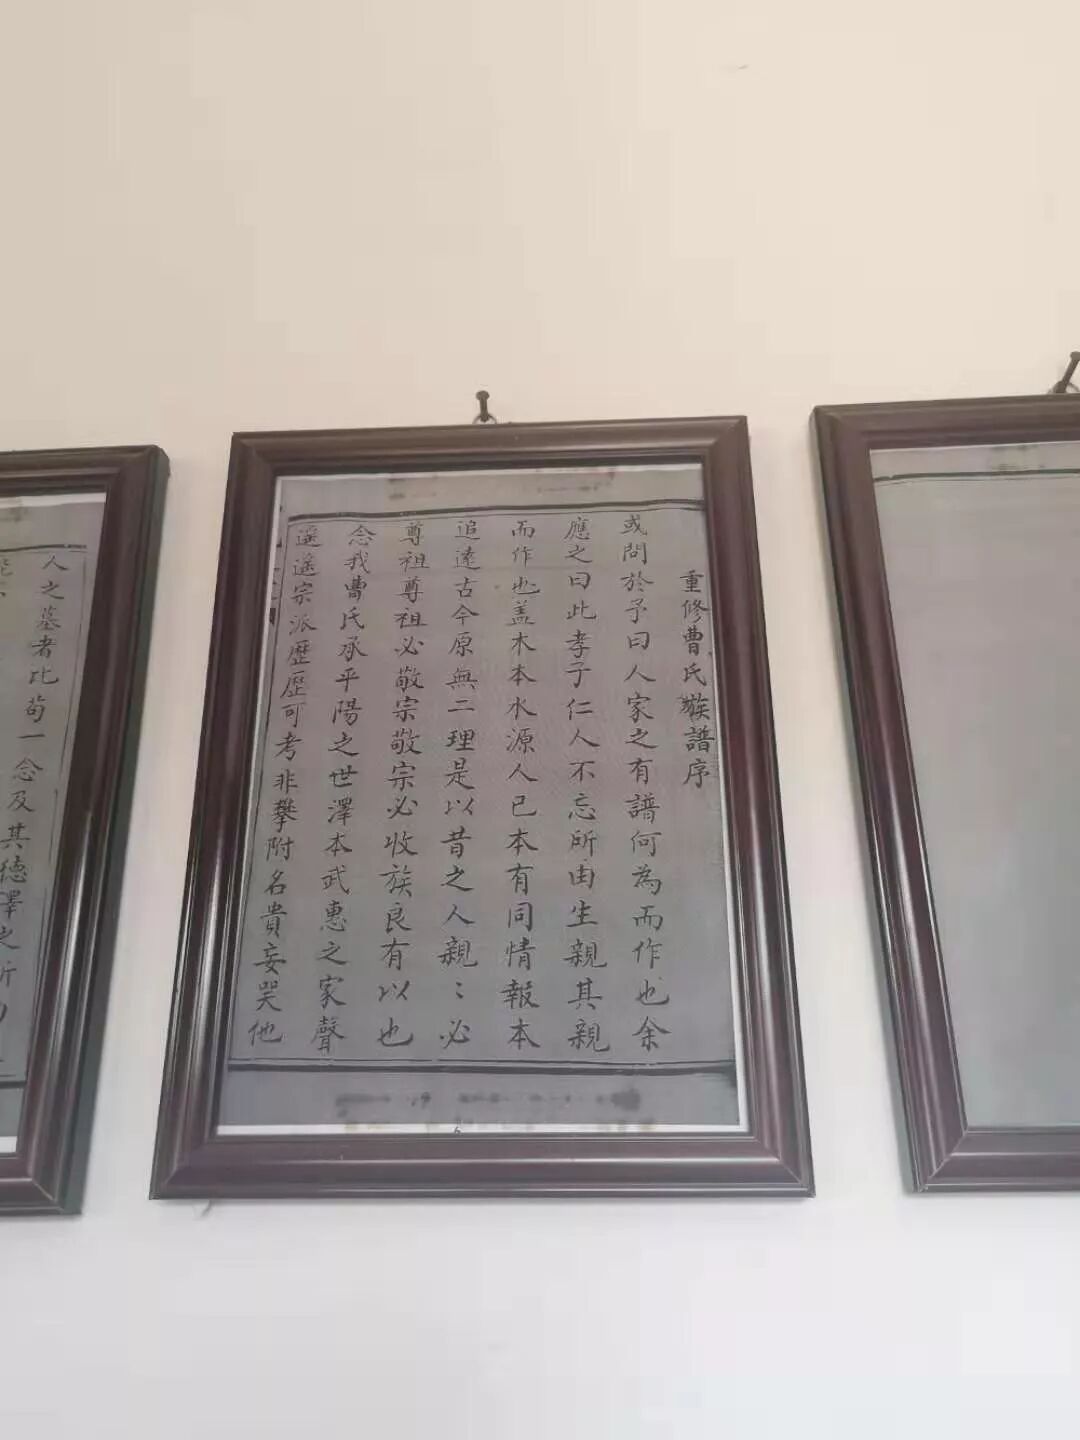 重修曹氏族譜序
或問於予曰人家之有譜何為而作也余
應之曰此孝子仁人不忘所由生親其親
而作也盖木本水源人已本有同情報本
追遠古今原無二理是以昔之人親〻必
尊祖尊祖必敬宗敬宗必收族良有以也
念我曹氏承平陽之世澤本武惠之家聲
遥遥宗派歷歷可考非攀附名貴妄哭他
人之墓者比苟一念及其德澤之所